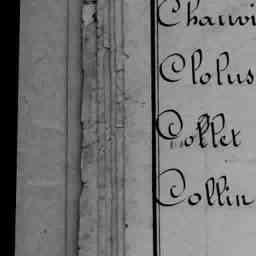 Chauvi
Clolus
Collet
Collin